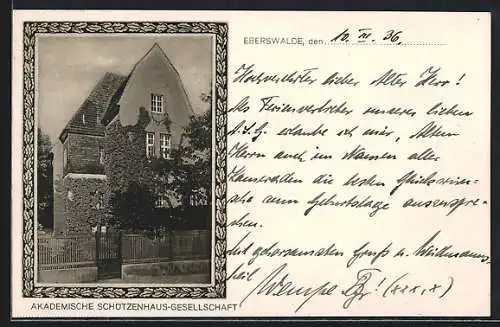 EBERSWALDE, den 10. III. 36.
Hochverehrter lieber Alter Herr!
Als Ferienvertreter unseres lieben
A.S.G. erlaube ich mir, Alten
Herrn auch im Namen aller
die besten Glückwün-
zum Geburtstage auszuspre-
chen.
Mit gehorsamsten Gruß u. Weidmanns
heil
(x x, x)
AKADEMISCHE SCHÜTZENHAUS-GESELLSCHAFT